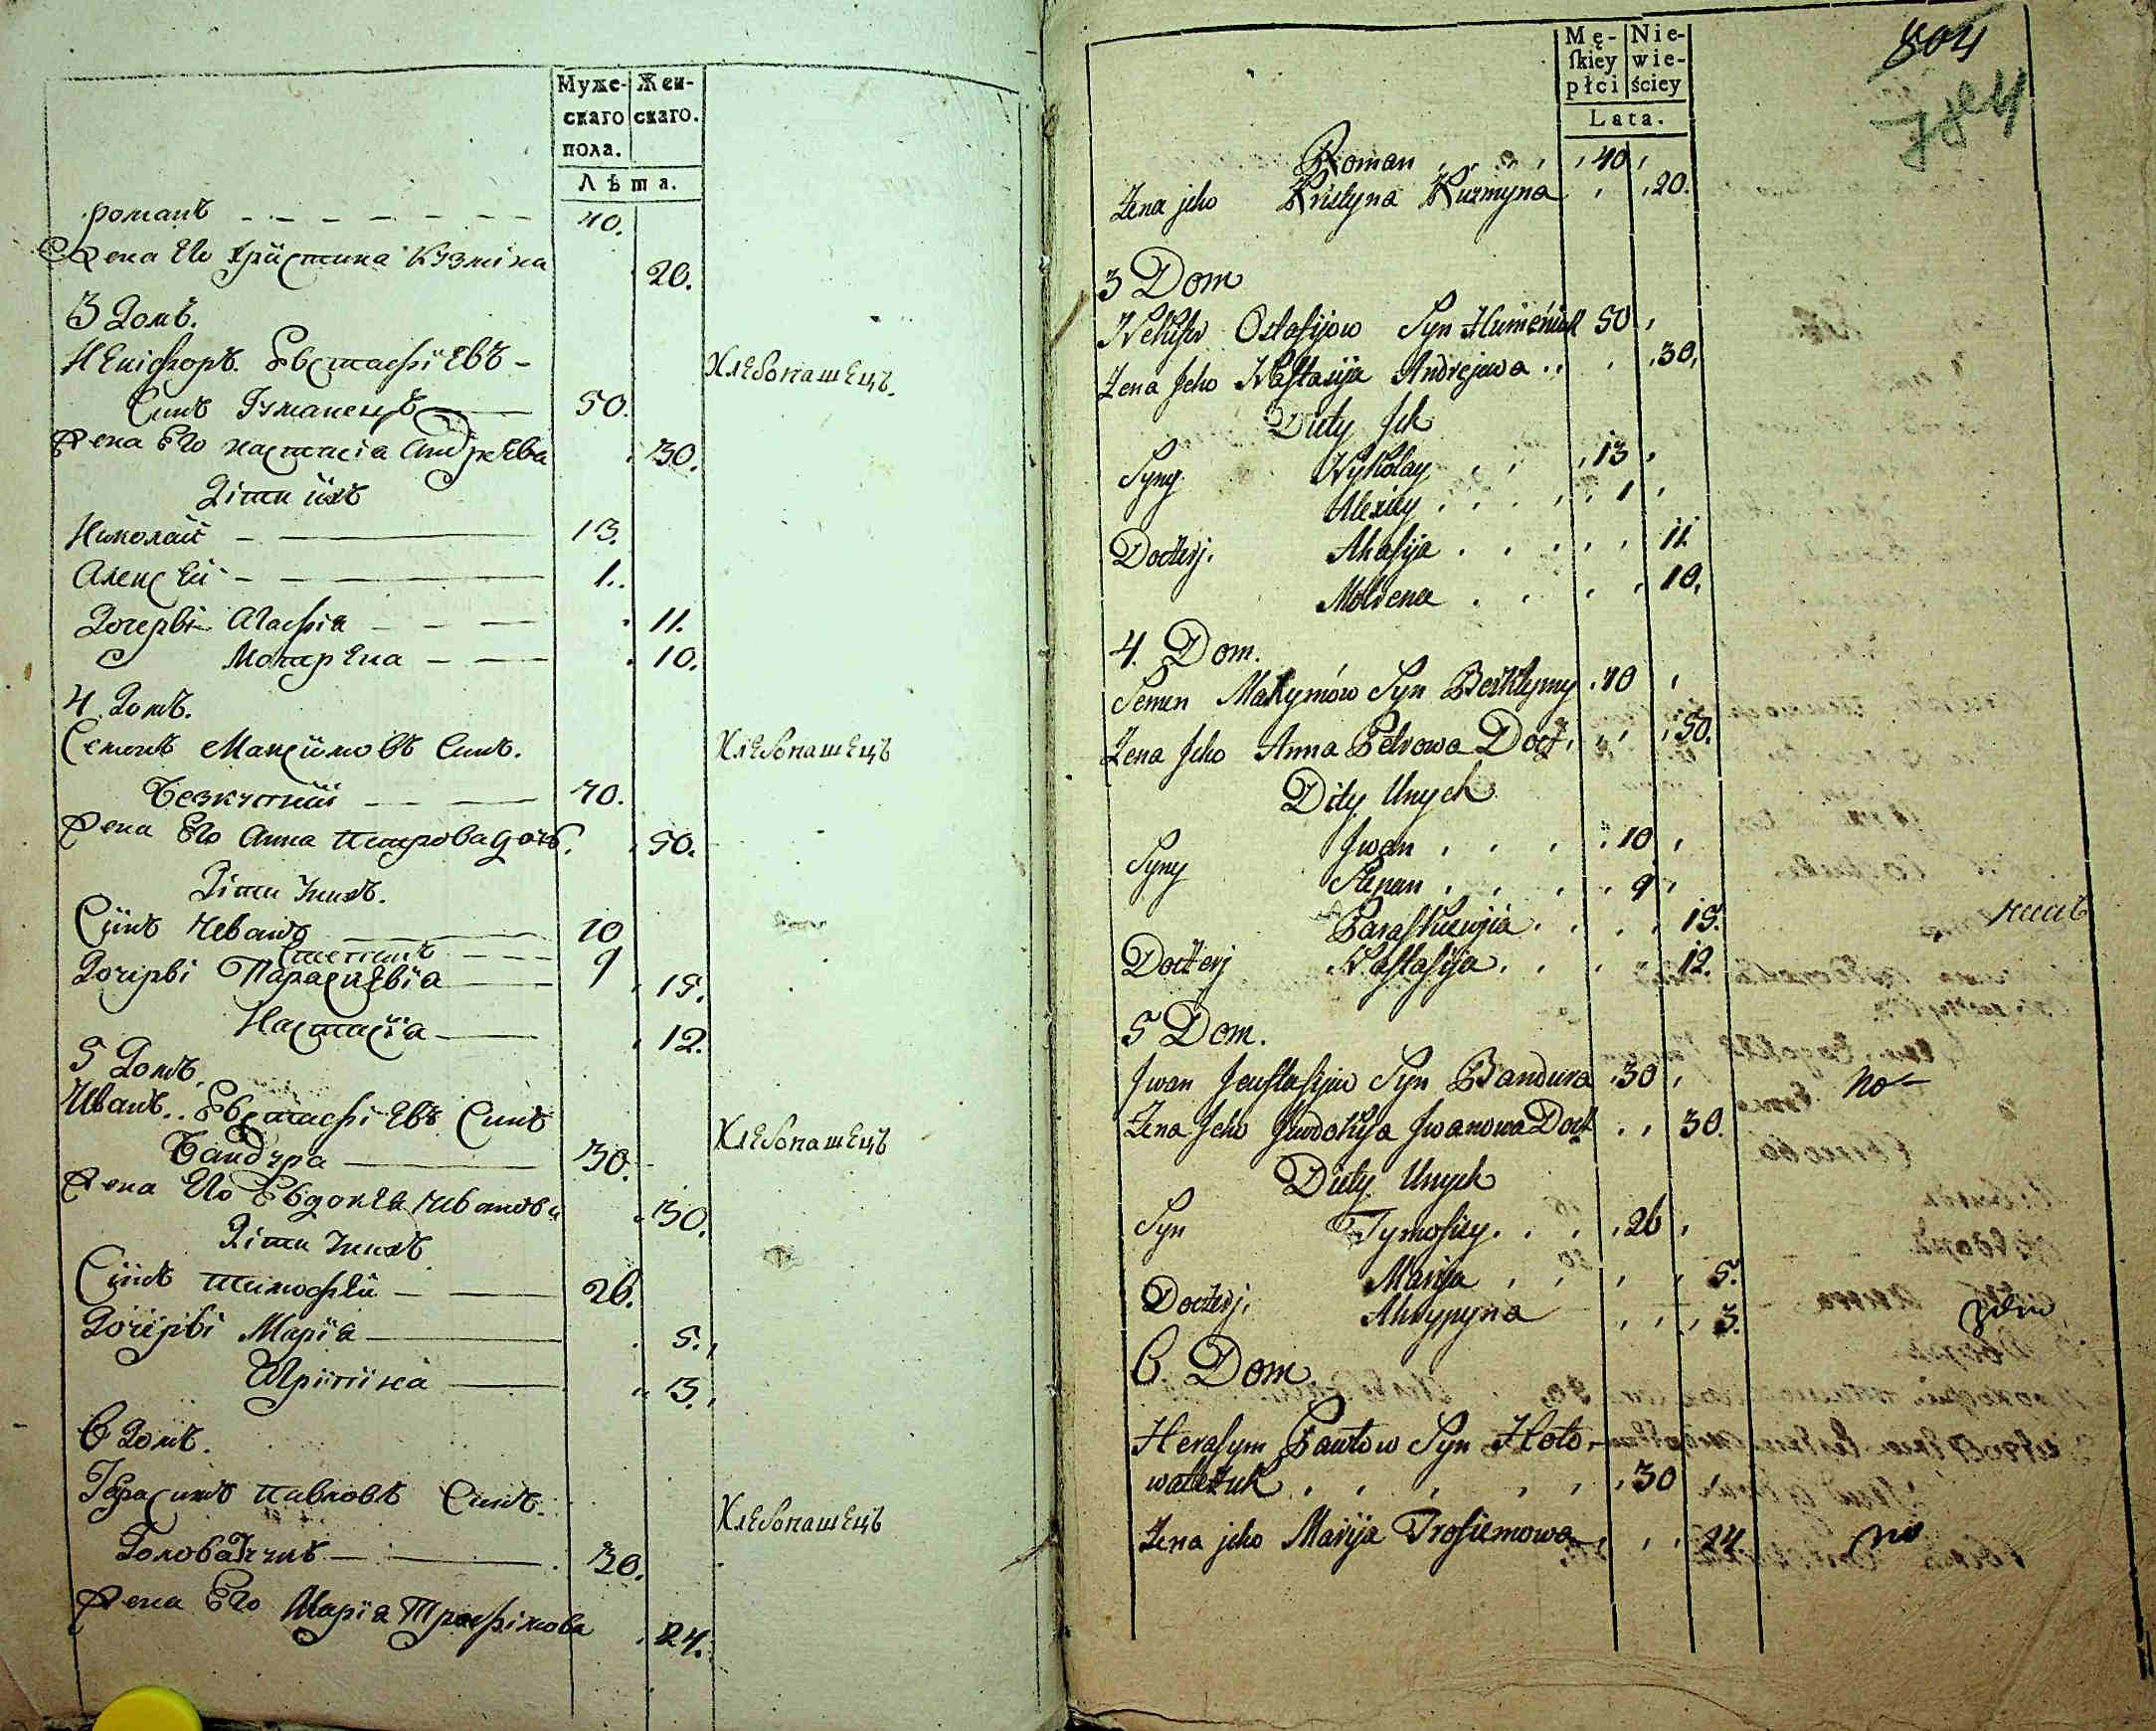 Муже-
скаго
пола.
Жен-
скаго.
Лѣта.
романъ 40.
Жена Его христина Кузміна 20.
3 Домъ.
Нѣкіфоръ Евстафіевъ Хлебопашецъ.
Синъ Гуманенъ 50.
Жена Его настасія Андреева 30.
Діти ихъ
Николай 13.
Алексѣй 1.
Дочерьві Агафія 11.
Мокрѣна 10.
4 Домъ.
Семенъ Максимовъ Синъ. Хлебопашецъ
Безкупній 70.
Жена Его Анна петрова дочь. 50.
Діти Унихъ.
Синъ Иванъ 10
Степанъ 9
Дочерві Параскѣвіа 15.
Настасіа 12.
5 Домъ.
Иванъ Евстафіевъ Синъ Хлебопашецъ
Бандура 30.
Жена Его Евдокѣя Иванова 30.
Діти Унихъ
Синъ тимофѣй 26.
Дочерві Маріа 5.
3.
6 Домъ.
Герасимъ павловъ Синъ. Хлебопашецъ
30.
Жена Его Маріа Трофімова 24.
804
Mę-
skiey
płci
Nie-
wie-
ściey
Lata.
Roman 40
Żena jeho Kristyna Kuzmyna 20.
3 Dom
Nekifor Ostafijow Syn Humeniuk 50
Żena Jeho Nastasija Andrejewa 30,
Diety Jch
Syny Nykołay 13
Alexiey 1
Doczterj. Ahafija 11
Mokrena 10,
4. Dom.
Semen Maxymów Syn 70
Żena Jeho Anna Petrowa Docz. 50.
Dity Unych
Syny Jwan 10
Stepan 9
Paraskiewija 15.
Doczterj Nastasija 12.
5 Dom.
Jwan Jeustafijew Syn Bandura 30
Żena Jeho Jewdokija Jwanowa Docz 30.
no
Diety Unych
Syn Tymofiey 26
Marija 5.
Doczterj. Ahrypyna 3.
6. Dom
Herasym Pawłow Syn Hoło-
watczuk 30
Żena jeho Marija Trofiemowa 24
no